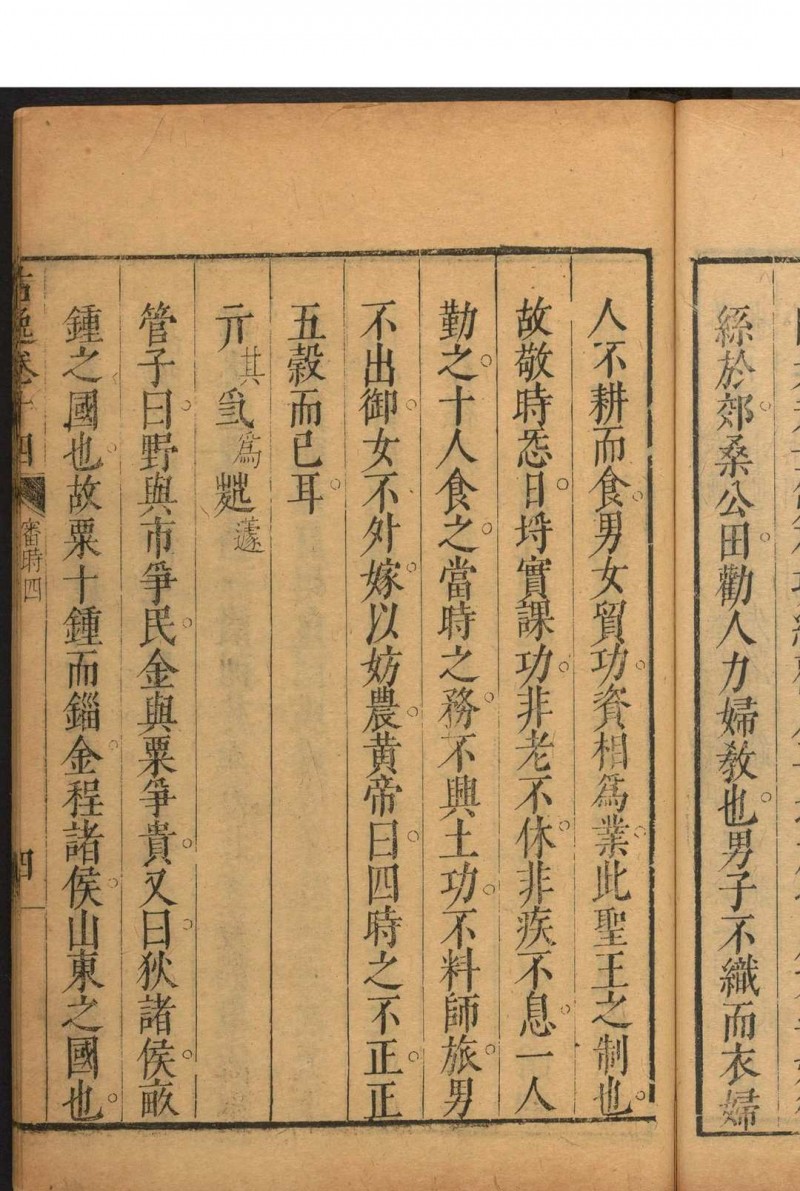 絲於郊。桑公田。勸人力婦教也。男子不織而衣婦
人不耕而食。男女貿功。資相爲業。此聖王之制也。
故敬時㤅日。埒實課功。非老不休。非疾不息。一人
勤之。十人食之。當時之務。不興土功。不料師旅。男
不出御。女不外嫁。以妨農。黃帝曰。四時之不正。正
五穀而已耳。
亓其爲蘧
管子曰。野與市爭民。金與粟爭貴。又曰。狄諸侯。畝
鍾之國也。故粟十鍾而錙金。程諸侯。山東之國也。
卷十四 審時四 四